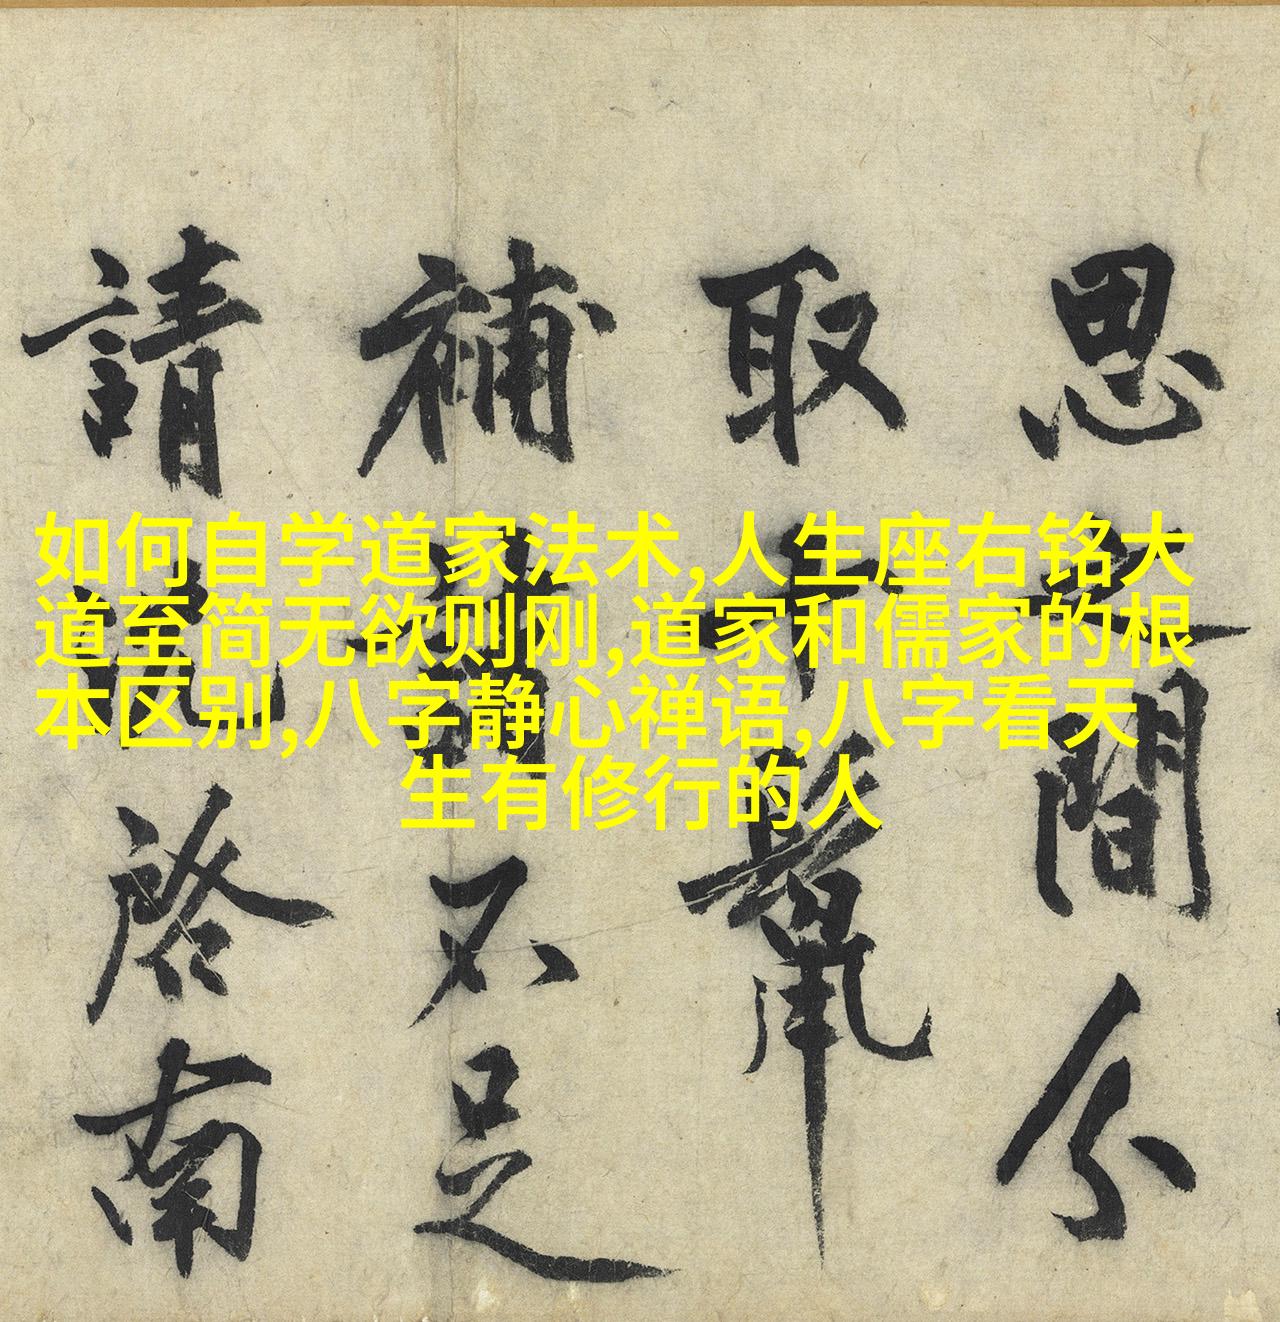 思
間分
取十鬣
補
不足
請
啓南
如何自学道家法术,人生座右铭大
道至简无欲则刚,道家和儒家的根
本区别,八字静心禅语,八字看天
生有修行的人